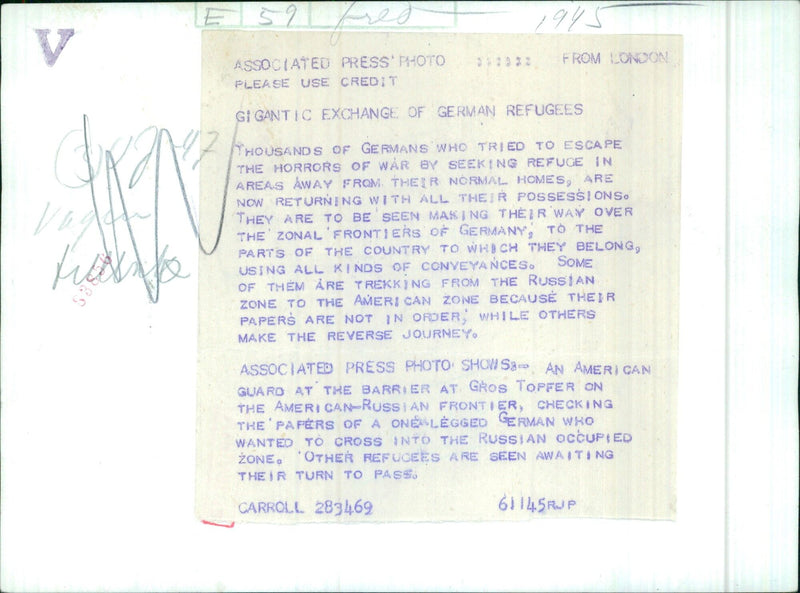 E 59 fred 1945
V
ASSOCIATED PRESS PHOTO FROM LONDON
PLEASE USE CREDIT
GIGANTIC EXCHANGE OF GERMAN REFUGEES
THOUSANDS OF GERMANS WHO TRIED TO ESCAPE
THE HORRORS OF WAR BY SEEKING REFUGE IN
AREAS AWAY FROM THEIR NORMAL HOMES, ARE
NOW RETURNING WITH ALL THEIR POSSESSIONS.
THEY ARE TO BE SEEN MAKING THEIR WAY OVER
THE ZONAL FRONTIERS OF GERMANY, TO THE
PARTS OF THE COUNTRY TO WHICH THEY BELONG,
USING ALL KINDS OF CONVEYANCES. SOME
OF THEM ARE TREKKING FROM THE RUSSIAN
ZONE TO THE AMERICAN ZONE BECAUSE THEIR
PAPERS ARE NOT IN ORDER, WHILE OTHERS
MAKE THE REVERSE JOURNEY.
ASSOCIATED PRESS PHOTO SHOWS:- AN AMERICAN
GUARD AT THE BARRIER AT GROS TOPFER ON
THE AMERICAN-RUSSIAN FRONTIER, CHECKING
THE PAPERS OF A ONE-LEGGED GERMAN WHO
WANTED TO CROSS INTO THE RUSSIAN OCCUPIED
ZONE. OTHER REFUGEES ARE SEEN AWAITING
THEIR TURN TO PASS.
CARROLL 283469 61145RJP